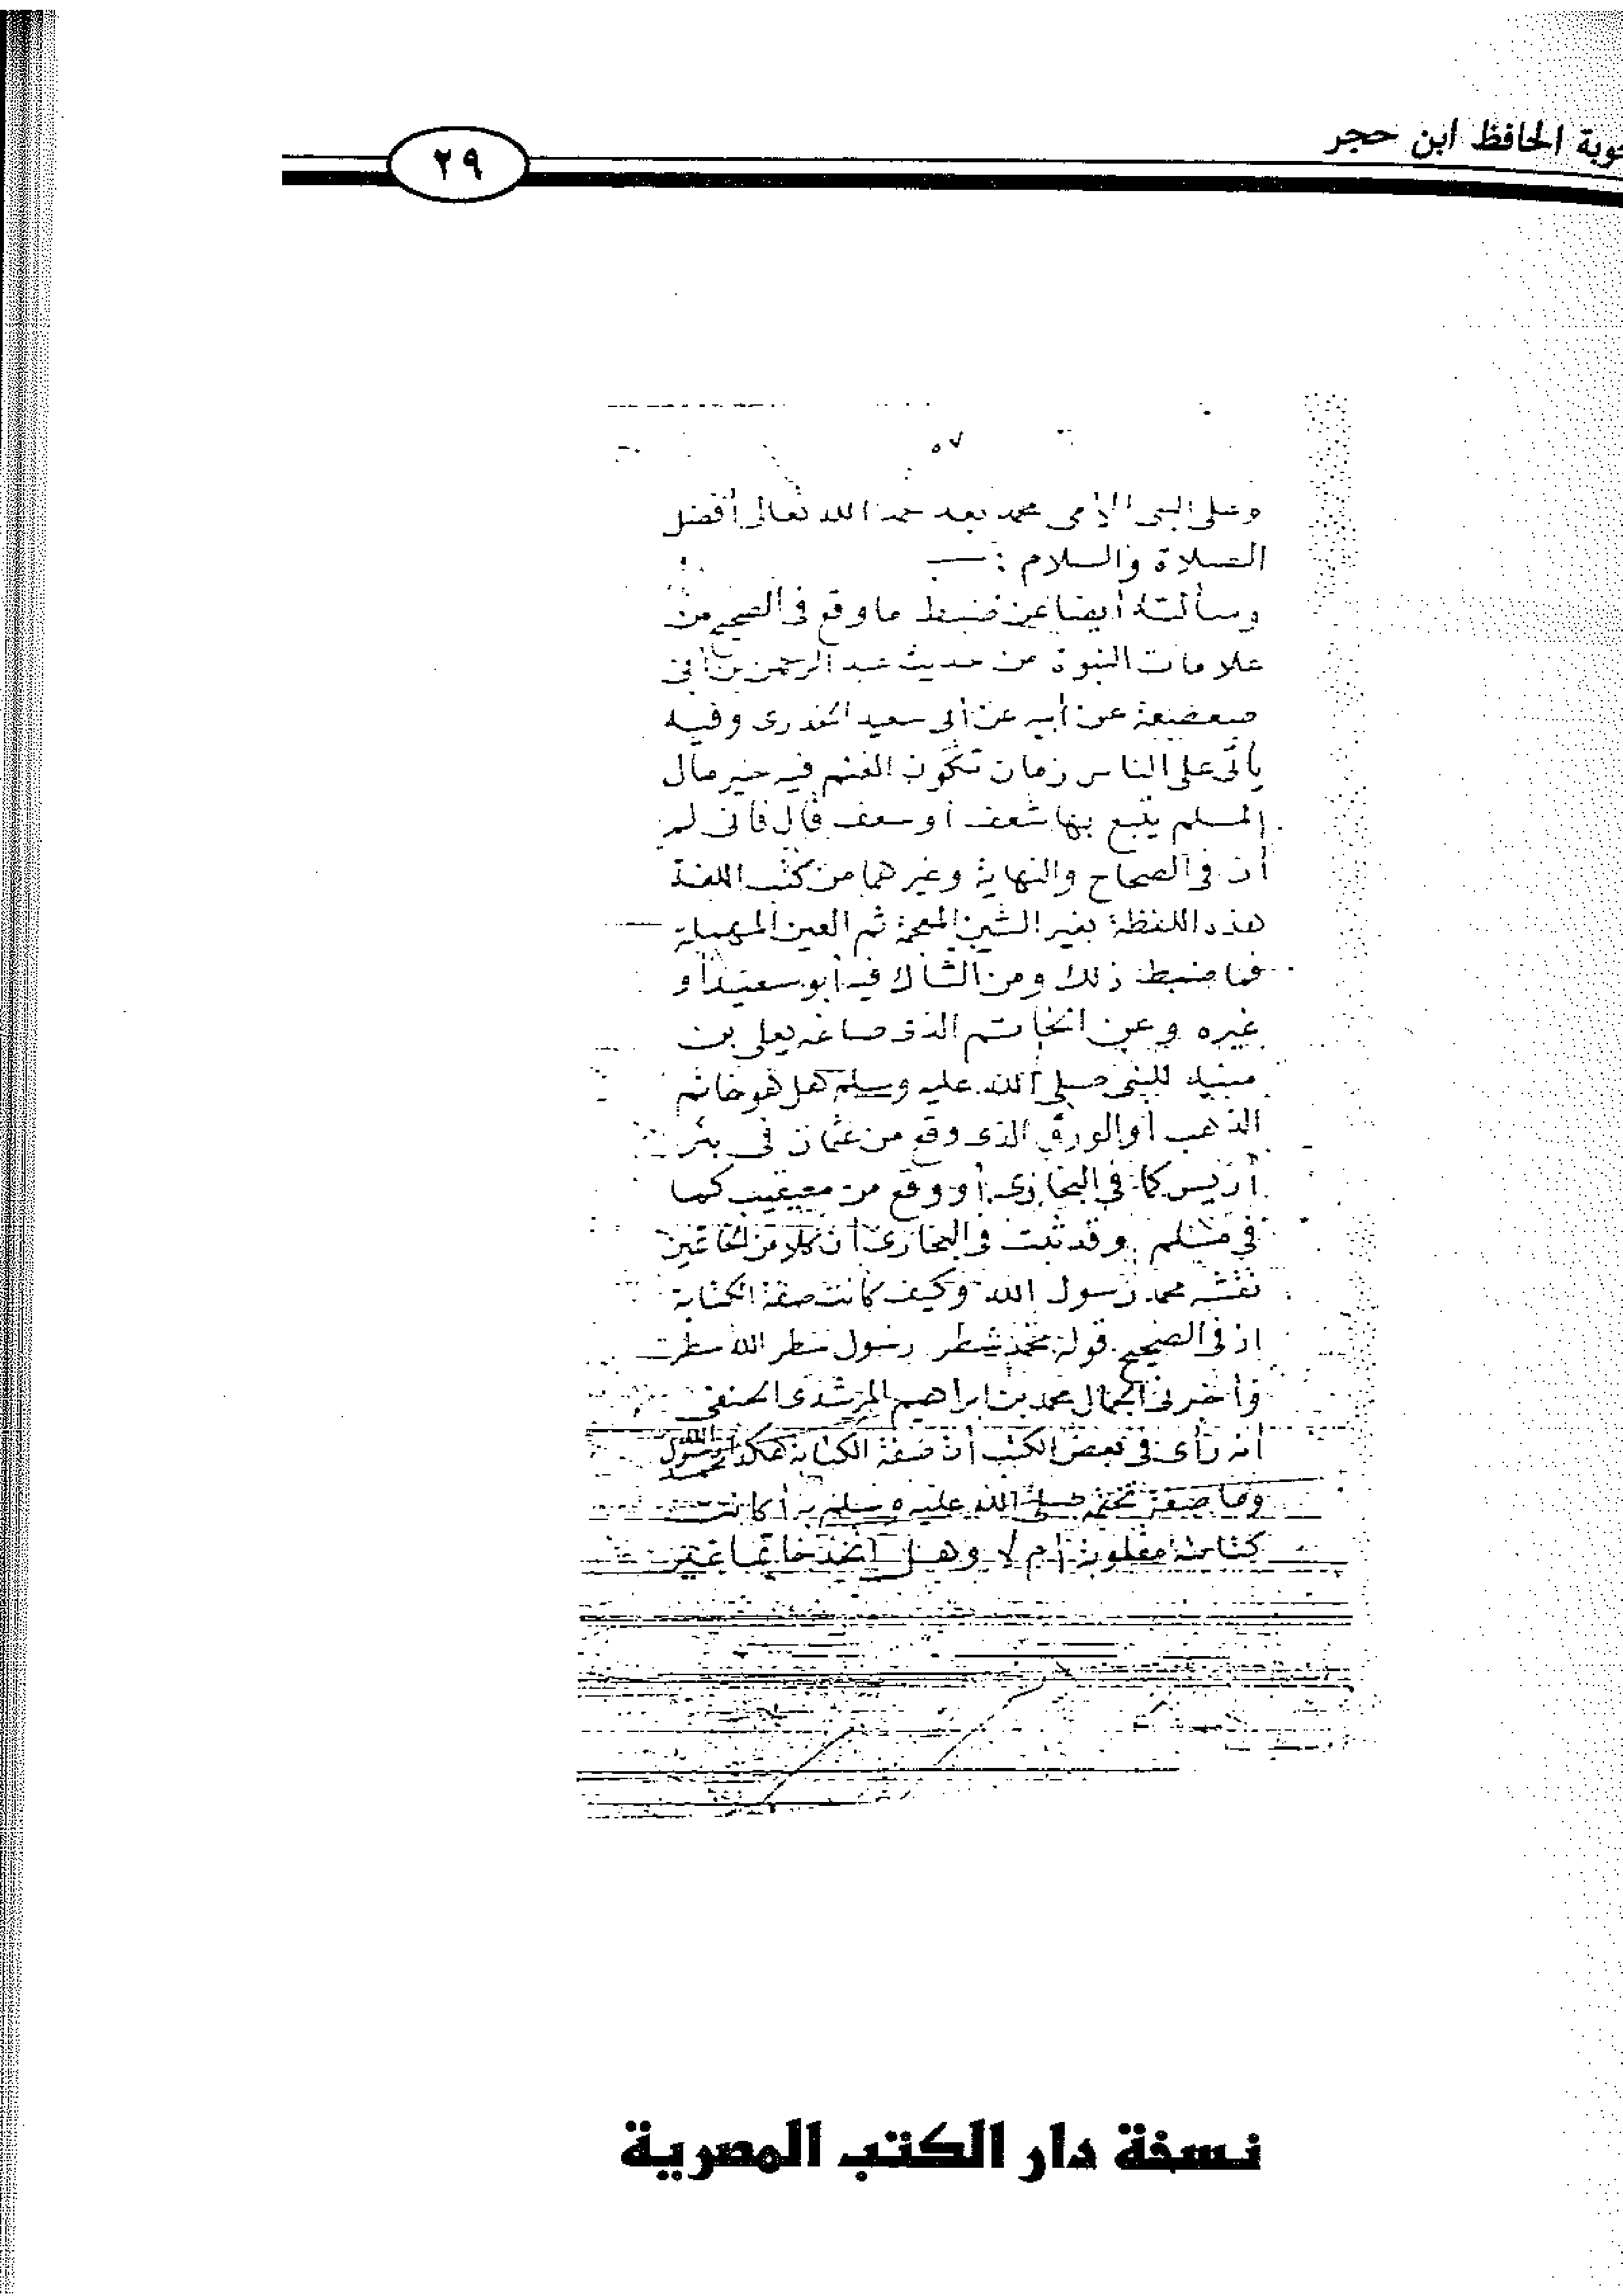 جوبة الحافظ ابن حجر
٢٩
٥٧
وعلى النبى الأمى محمد بعد حمد الله تعالى أفضل
الصلاة والسلام :ـ
وسألته أيضا عن ضبط ما وقع فى الصحيح من
علامات النبوة من حديث عبد الرحمن بن أبى
صعصعة عن أبيه عن أبى سعيد الخدرى وفيه
يأتى على الناس زمان تكون الغنم فيه خير مال
المسلم يتبع بها شعف أو سعف قال فانى لم
أر فى الصحاح والنهاية وغيرهما من كتب اللغة
هذه اللفظة بغير الشين المعجمة ثم العين المهملة
فما ضبط ذلك ومن الشاك فيه أبو سعيد أو
غيره وعن الخاتم الذى صاغه يعلى بن
منيه للنبى صلى الله عليه وسلم هل هو خاتم
الذهب أو الورق الذى وقع من عثمان فى بئر
أريس كما فى البخارى أو وقع من معيقيب كما
فى مسلم وقد ثبت فى البخارى أن كلا من الخاتمين
نقشه محمد رسول الله وكيف كانت صفة الكتابة
اذ فى الصحيح قوله محمد سطر رسول سطر الله سطر
وأخبرنى الجمال محمد بن ابراهيم المرشدى الحنفى
أنه رأى فى بعض الكتب أن صفة الكتابة هكذا الله رسول محمد
وما صفة تختمه صلى الله عليه وسلم به أكانت
كتابته مقلوبة أم لا وهل اتخذ خاتما
نسخة دار الكتب المصرية